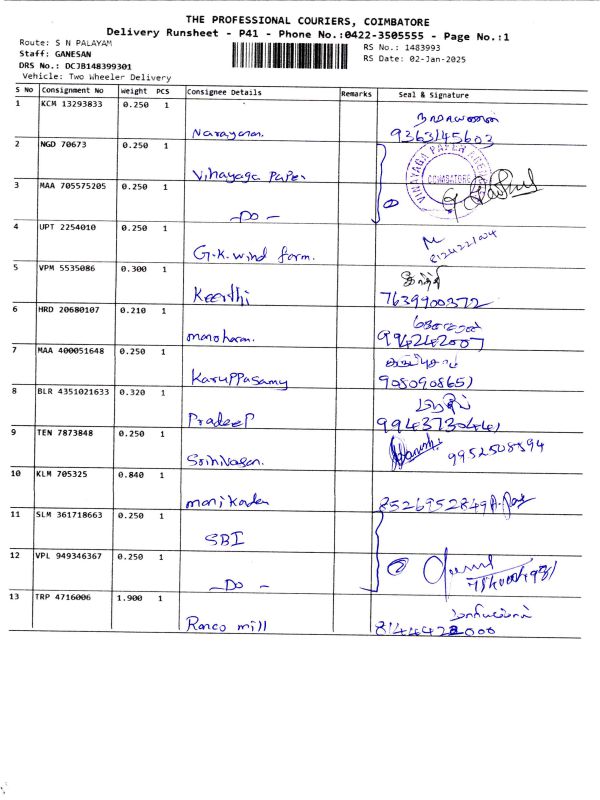 THE PROFESSIONAL COURIERS, COIMBATORE
Delivery Runsheet - P41 - Phone No.:0422-3505555 - Page No.:1
Route: S N PALAYAM
Staff: GANESAN
DRS No.: DCJB148399301
Vehicle: Two Wheeler Delivery
RS No.: 1483993
RS Date: 02-Jan-2025
S No Consignment No Weight PCS Consignee Details Remarks Seal & Signature
1 KCM 13293833 0.250 1
Narayanan. 9363145603
2 NGD 70673 0.250 1
Vinayaga Paper
VINAYAGA PAPER
COIMBATORE
3 MAA 705575205 0.250 1
-Do- 2
4 UPT 2254010 0.250 1
G.K.wind farm.
5 VPM 5535086 0.300 1
Keerthi 7639900372
6 HRD 20680107 0.210 1
manoharn. 994242007
7 MAA 400051648 0.250 1
Karuppasamy 9080908651
8 BLR 4351021633 0.320 1
Pradeep 9943730441
9 TEN 7873848 0.250 1
Srinivasan. 9952508594
10 KLM 705325 0.840 1
manikanden 8526952849
11 SLM 361718663 0.250 1
SBI
12 VPL 949346367 0.250 1
-Do - 2
13 TRP 4716006 1.900 1
Ranco mill